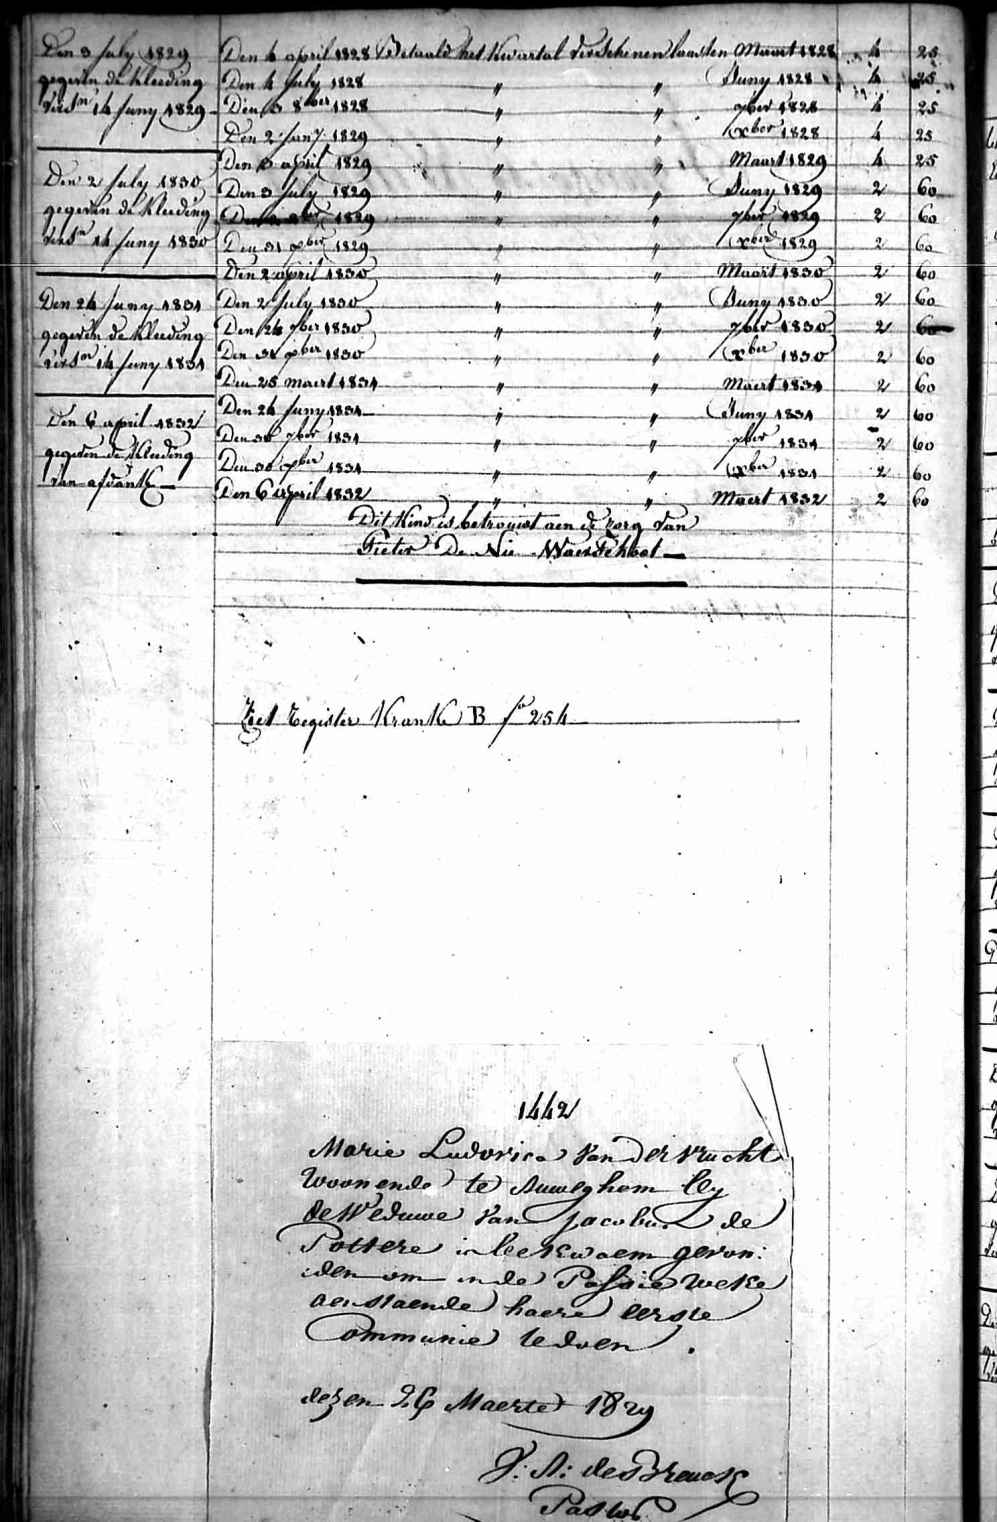 Den 3 July 1829
gegeven de kleeding
versn 14 Juny 1829
Den 2 July 1830
gegeven de kleeding
versn 14 Juny 1830
Den 24 Juny 1831
gegeven de kleeding
versn 14 Juny 1831
Den 6 april 1832
gegeven de kleeding
van afdank
Den 4 april 1828 Betaald het kwartal verschenen laasten Maart 1828 4 25
Den 4 July 1828 " " Juny 1828 4 25
Den 3 8ber 1828 " " 7ber 1828 4 25
Den 2 Jany 1829 " " xber 1828 4 25
Den 3 april 1829 " " Maart 1829 4 25
Den 3 July 1829 " " Juny 1829 2 60
Den 8ber 1829 " " 7ber 1829 2 60
Den 31 xber 1829 " " xber 1829 2 60
Den 2 april 1830 " " Maart 1830 2 60
Den 2 July 1830 " " Juny 1830 2 60
Den 24 7ber 1830 " " 7ber 1830 2 60
Den 31 xber 1830 " " xber 1830 2 60
Den 25 maert 1831 " " Maert 1831 2 60
Den 24 Juny 1831 " " Juny 1831 2 60
Den 30 7ber 1831 " " 7ber 1831 2 60
Den 30 xber 1831 " " xber 1831 2 60
Den 6 april 1832 " " Maert 1832 2 60
Dit Kind is betrouwt aen de zorg van
Pieter De Nie Waerschoot
Ziet Register Kranke B fo 254
1442
Marie Ludovica Van der Vrucht
woonende te Auweghem by
de Weduwe Van Jacobus de
Pottere is bekwaem gevon:
den om in de Passie weke
aenstaende haere eerste
Communie te doen .
dezen 26 Maerte 1829
J: A: de Breuck
Pastor